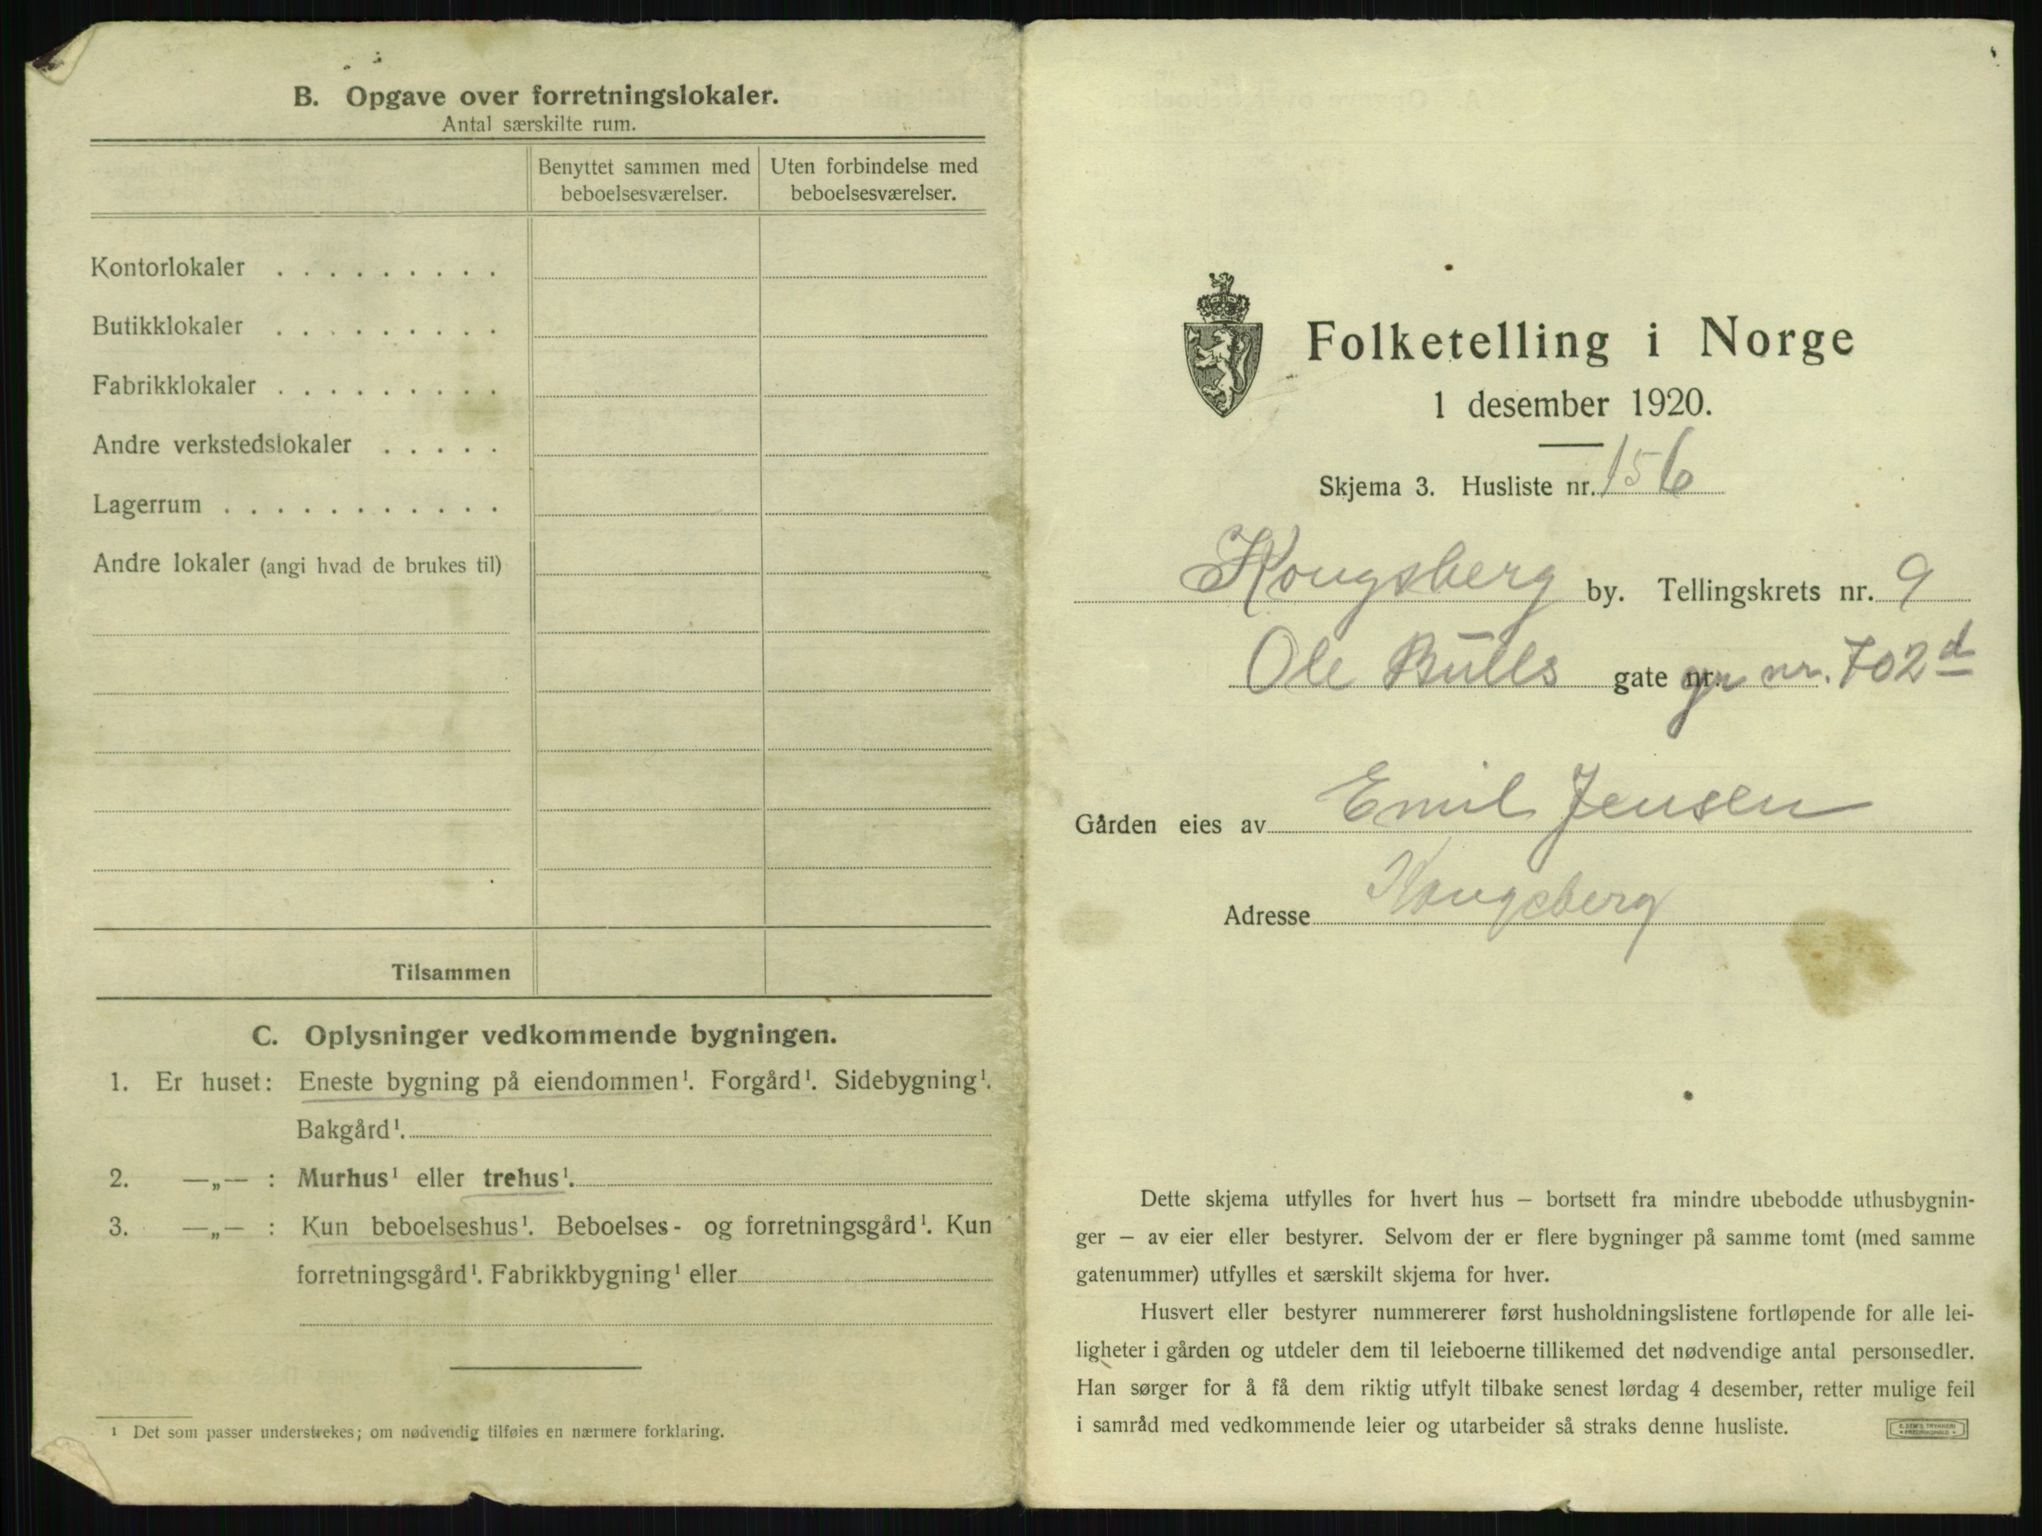 B. Opgave over forretningslokaler.
Antal særskilte rum.
Benyttet sammen med beboelsesværelser.
Uten forbindelse med beboelsesværelser.
Kontorlokaler . . . . . . . . .
Butikklokaler . . . . . . . . .
Fabrikklokaler . . . . . . . . .
Andre verkstedslokaler . . . . .
Lagerrum . . . . . . . . . . .
Andre lokaler (angi hvad de brukes til)
Tilsammen
C. Oplysninger vedkommende bygningen.
1. Er huset: Eneste bygning på eiendommen¹. Forgård¹. Sidebygning¹.
Bakgård¹.
2. —„— : Murhus¹ eller trehus¹.
3. —„— : Kun beboelseshus¹. Beboelses- og forretningsgård¹. Kun
forretningsgård¹. Fabrikkbygning¹ eller
¹ Det som passer understrekes; om nødvendig tilføies en nærmere forklaring.
Folketelling i Norge
1 desember 1920.
Skjema 3. Husliste nr. 156
Kongsberg by. Tellingskrets nr. 9
Ole Bulls gate nr. gr nr. 702d
Gården eies av Emil Jensen
Adresse Kongsberg
Dette skjema utfylles for hvert hus – bortsett fra mindre ubebodde uthusbygnin-
ger – av eier eller bestyrer. Selvom der er flere bygninger på samme tomt (med samme
gatenummer) utfylles et særskilt skjema for hver.
Husvert eller bestyrer nummererer først husholdningslistene fortløpende for alle lei-
ligheter i gården og utdeler dem til leieboerne tillikemed det nødvendige antal personsedler.
Han sørger for å få dem riktig utfylt tilbake senest lørdag 4 desember, retter mulige feil
i samråd med vedkommende leier og utarbeider så straks denne husliste.